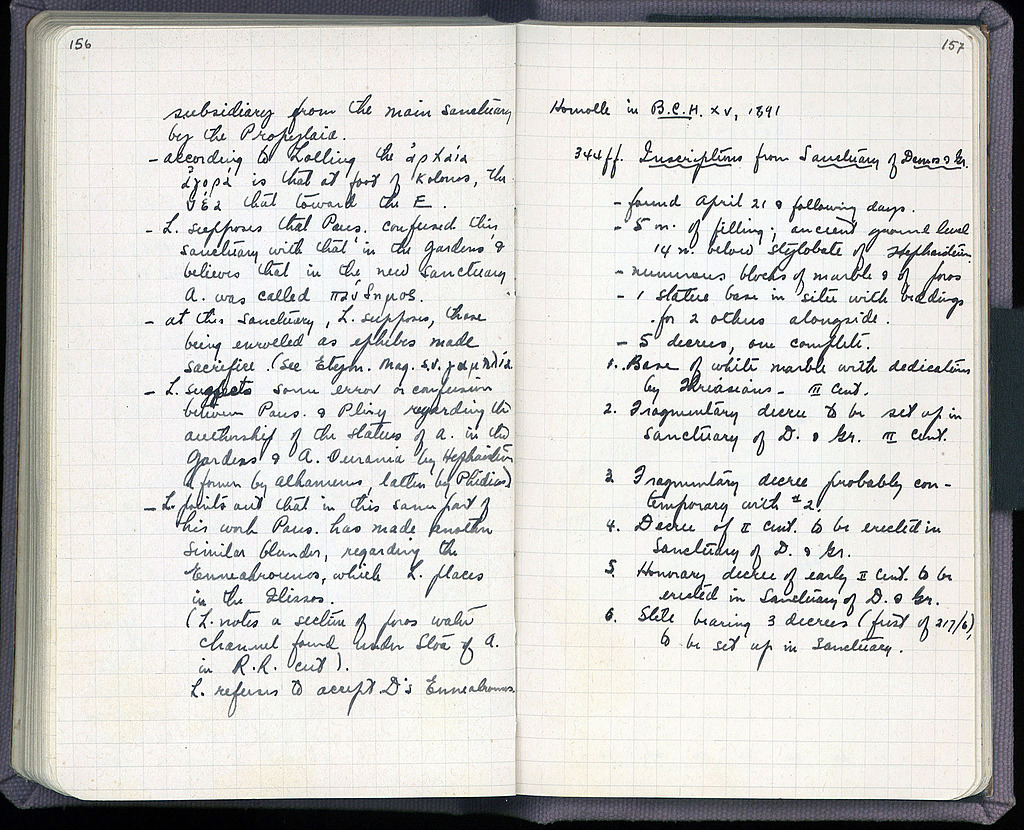 156
subsidiary from the main sanctuary
by the Propylaia.
- according to Lolling the ἀρχαία
ἀγορά is that at foot of Kolonos, the
νέα that toward the E.
- L. supposes that Paus. confused this
sanctuary with that in the Gardens &
believes that in the new sanctuary
A. was called πάνδημος.
- at this sanctuary, L. supposes, those
being enrolled as ephibes made
sacrifice. (See Etym. Mag. s.v. γαμηλία
- L. suspects some error or confusion
between Paus. & Pliny regarding the
authorship of the statues of A. in the
Gardens & A. Ourania by Hephaistion
(former by Alkamenes, latter by Phidias)
- L. points out that in this same part of
his work Paus. has made another
similar blunder, regarding the
Enneakrounos, which L. places
in the Ilissos.
(L. notes a section of poros water
channel found under Stoa of A.
in R.R. cut).
L. refuses to accept D's Enneakrounos.
157
Homolle in B.C.H. XV, 1891
344ff. Inscriptions from Sanctuary of Demos & Gr.
- found April 21 & following days.
- 5 m. of filling; ancient ground level
14 m. below stylobate of Hephaisteion.
- numerous blocks of marble & of poros
- 1 statue base in situ with beddings
for 2 others alongside.
- 5 decrees, one complete.
1. Base of white marble with dedication
by Thriasians - II cent.
2. Fragmentary decree to be set up in
Sanctuary of D. & Gr. II cent.
3. Fragmentary decree probably con-
temporary with #2.
4. Decree of II cent. to be erected in
Sanctuary of D. & Gr.
5. Honorary decree of early II cent. to be
erected in Sanctuary of D. & Gr.
6. Stele bearing 3 decrees (first of 217/6),
to be set up in Sanctuary.